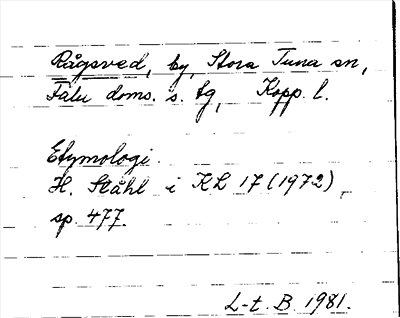 Rågsved, by, Stora Tuna sn,
Falu doms. s. tg, Kopp. l.
Etymologi.
H. Ståhl i KL 17 (1972),
sp. 477.
L-t. B. 1981.